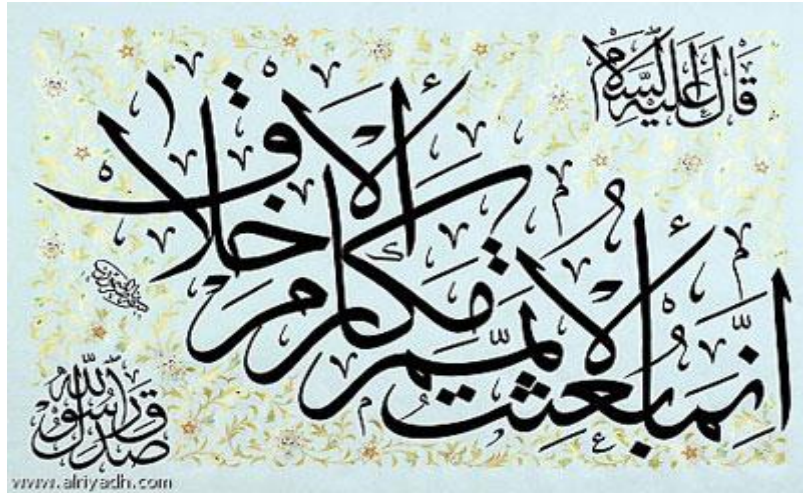 قال عليه السلام
إنما بعثت لأتمم مكارم الأخلاق
صدق رسول الله
www.alriyadh.com